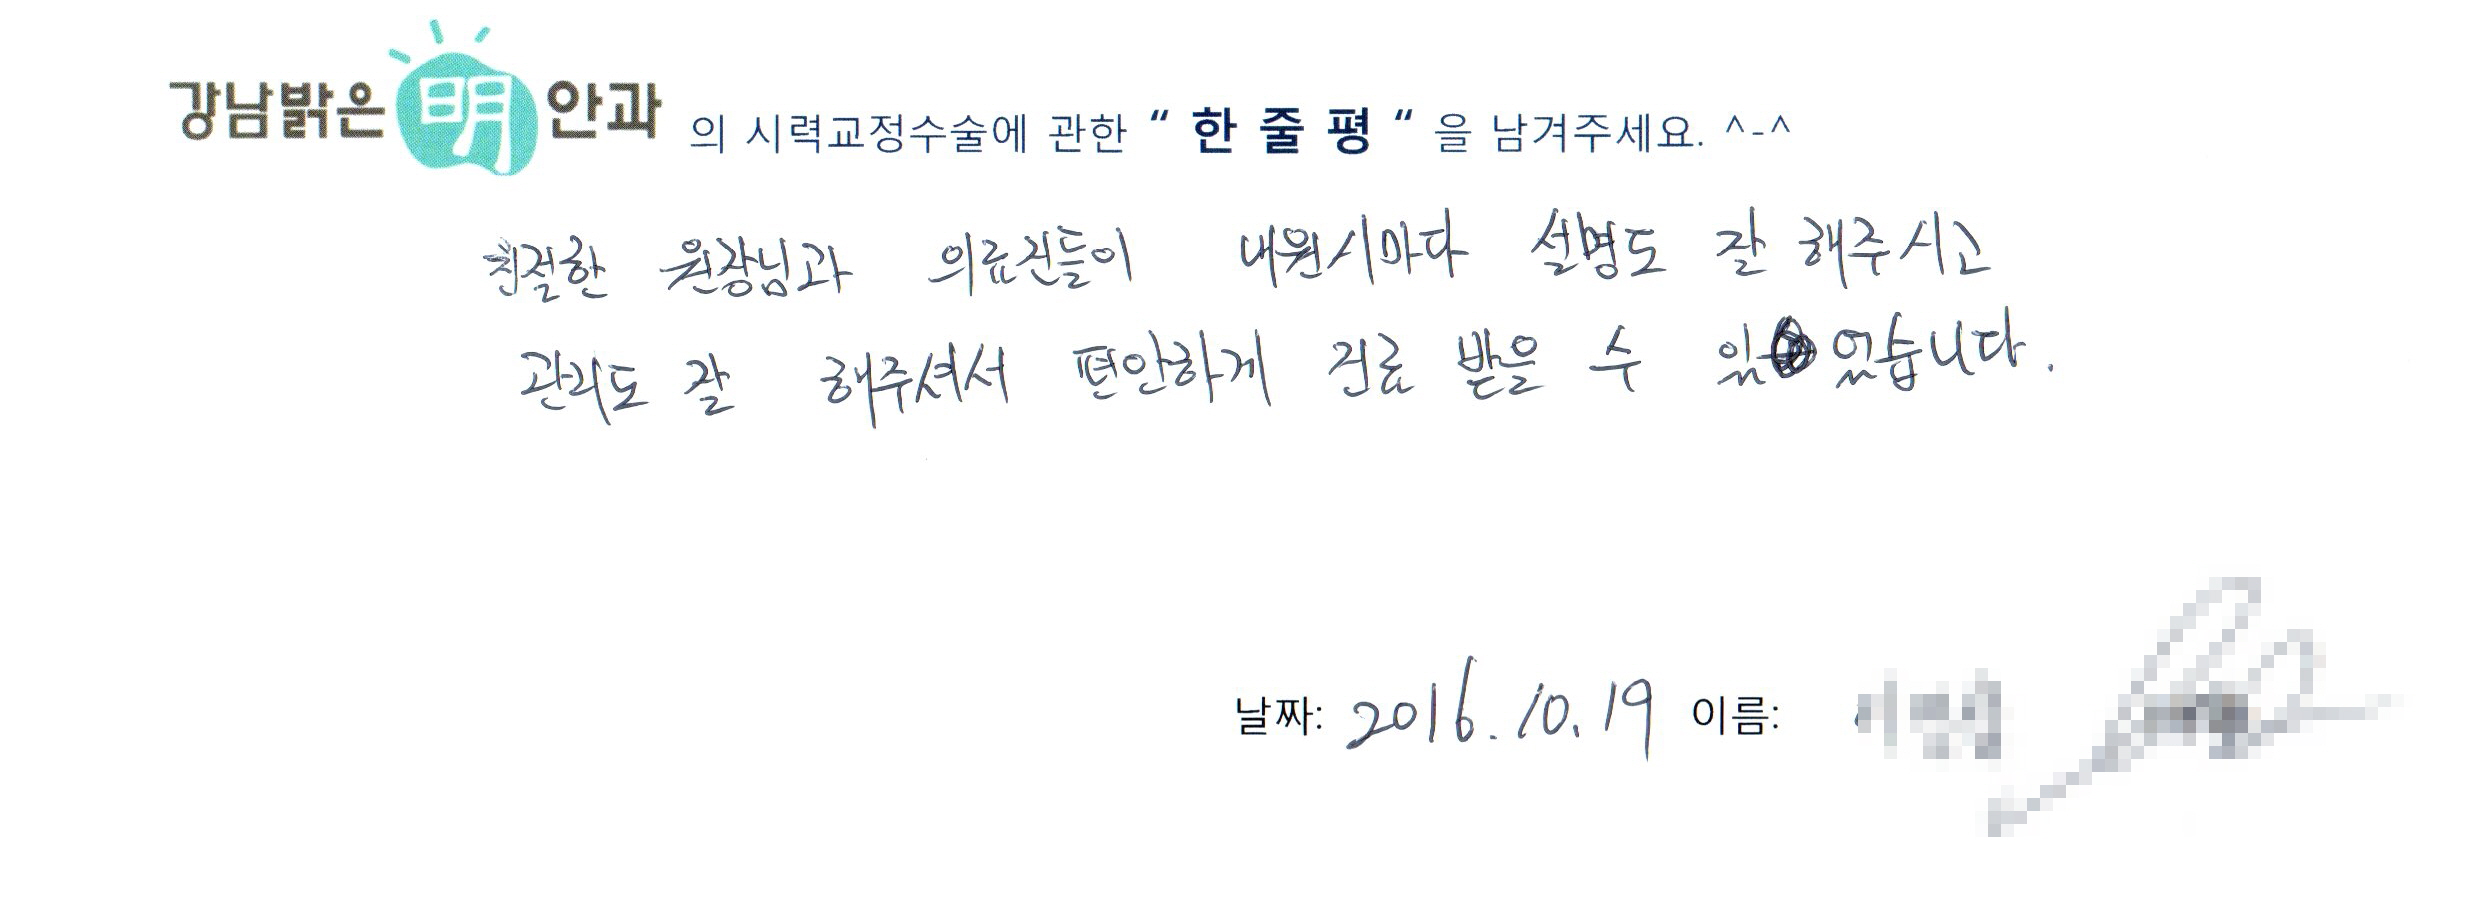 강남밝은 明 안과 의 시력교정수술에 관한 “ 한 줄 평 “ 을 남겨주세요. ^-^
친절한 원장님과 의료진들이 내원시마다 설명도 잘 해주시고
관리도 잘 해주셔서 편안하게 진료 받을 수 있 었습니다.
날짜: 2016. 10. 19 이름: